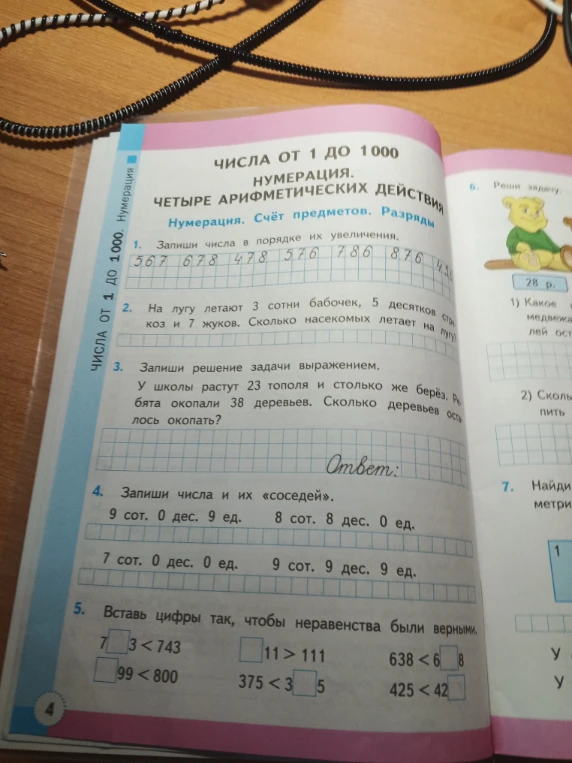 ЧИСЛА ОТ 1 ДО 1000
НУМЕРАЦИЯ.
ЧЕТЫРЕ АРИФМЕТИЧЕСКИХ ДЕЙСТВИЯ
Нумерация. Счёт предметов. Разряды
1. Запиши числа в порядке их увеличения.
567 678 478 576 786 876
2. На лугу летают 3 сотни бабочек, 5 десятков стре
коз и 7 жуков. Сколько насекомых летает на лугу?
3. Запиши решение задачи выражением.
У школы растут 23 тополя и столько же берёз. Ре
бята окопали 38 деревьев. Сколько деревьев оста
лось окопать?
Ответ:
4. Запиши числа и их «соседей».
9 сот. 0 дес. 9 ед. 8 сот. 8 дес. 0 ед.
7 сот. 0 дес. 0 ед. 9 сот. 9 дес. 9 ед.
5. Вставь цифры так, чтобы неравенства были верными.
7□3 < 743 □11 > 111 638 < 6□8
□99 < 800 375 < 3□5 425 < 42□
4
ЧИСЛА ОТ 1 ДО 1000. Нумерация
6. Реши задачу.
28 р.
1) Какое
медвежа
лей ост
2) Сколь
пить
7. Найди
метри
1
У
У